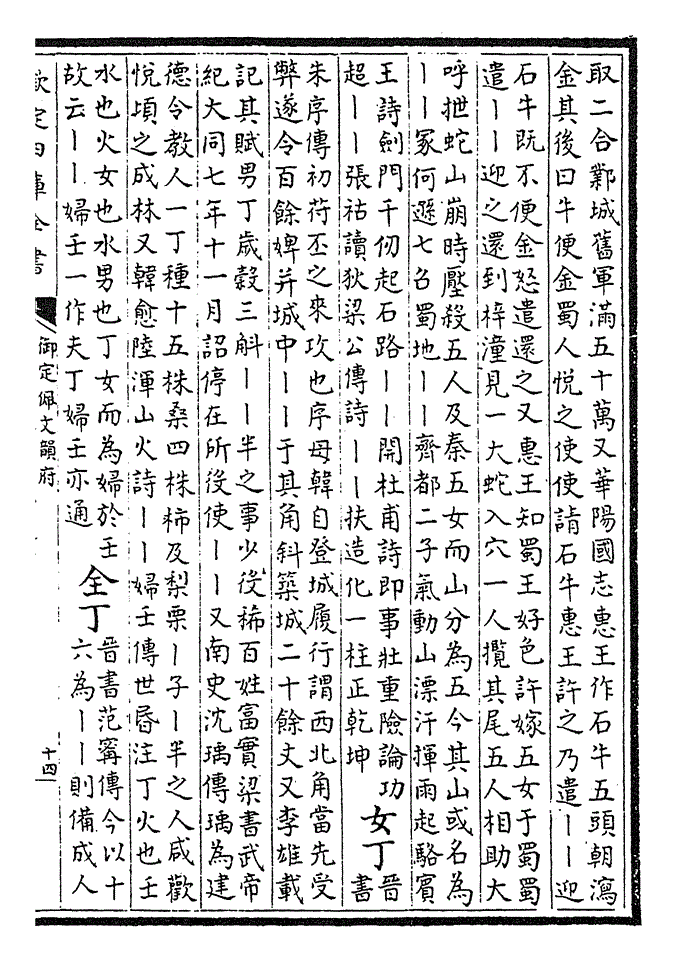 取二合鄴城舊軍滿五十萬又華陽國志惠王作石牛五頭朝瀉
金其後曰牛便金蜀人悅之使使請石牛惠王許之乃遣丨丨迎
石牛既不便金怒遣還之又惠王知蜀王好色許嫁五女于蜀蜀
遣丨丨迎之還到梓潼見一大蛇入穴一人攬其尾五人相助大
呼抴蛇山崩時壓殺五人及秦五女而山分為五今其山或名為
丨丨冢何遜七召蜀地丨丨齊都二子氣動山漂汗揮雨起駱賓
王詩劍門千仞起石路丨丨開杜甫詩即事壯重險論功
超丨丨張祜讀狄梁公傳詩丨丨扶造化一柱正乾坤
女丁
晉
書
朱序傳初苻丕之來攻也序母韓自登城履行謂西北角當先受
弊遂令百餘婢并城中丨丨于其角斜築城二十餘丈又李雄載
記其賦男丁歲穀三斛丨丨半之事少役稀百姓富實梁書武帝
紀大同七年十一月詔停在所役使丨丨又南史沈瑀傳瑀為建
德令教人一丁種十五株桑四株柿及梨栗丨子丨半之人咸歡
悅頃之成林又韓愈陸渾山火詩丨丨婦壬傳世昏注丁火也壬
水也火女也水男也丁女而為婦於壬
故云丨丨婦壬一作夫丁婦壬亦通
全丁
晉書范寗傳今以十
六為丨丨則備成人
欽定四庫全書
御定佩文韻府
十四